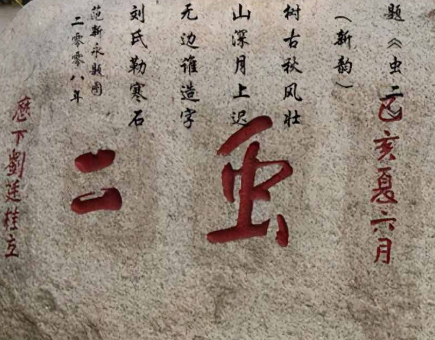 题《虫二》
（新韵）
树古秋风壮
山深月上迟
无边谁造字
刘氏勒寒石
范新永题图
二零零八年
己亥夏六月
虫二
歷下劉廷桂立